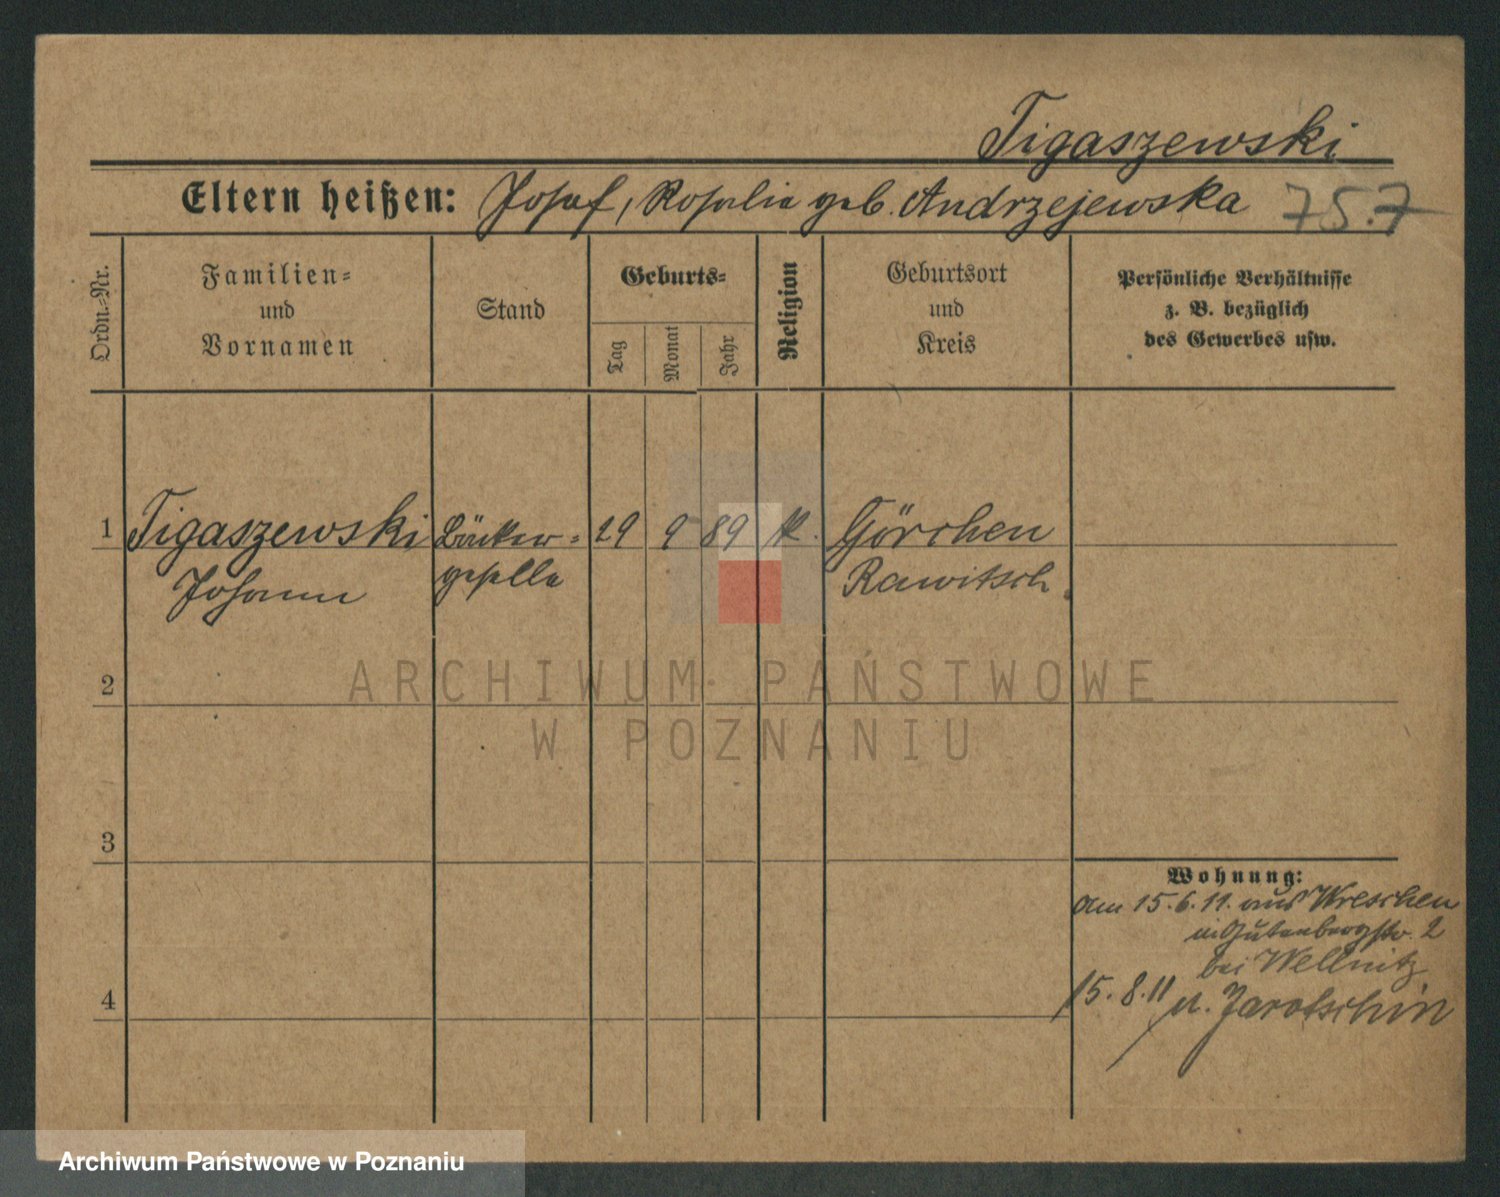 Tigaszewski
Eltern heißen: Josef, Rosalie geb. Andrzejewska 75.7
Ordn.-Nr.
Familien-
und
Vornamen
Stand
Geburts-
Tag
Monat
Jahr
Religion
Geburtsort
und
Kreis
Persönliche Verhältnisse
z. B. bezüglich
des Gewerbes usw.
1 Tigaszewski Bäcker- 29 9 89 k. Görchen
Johann geselle Rawitsch.
2
3
4
Wohnung:
am 15.6.11. aus Wreschen
in Gutenbergstr. 2
bei Wellnitz
15.8.11 n. Jarotschin
ARCHIWUM PAŃSTWOWE
W POZNANIU
Archiwum Państwowe w Poznaniu